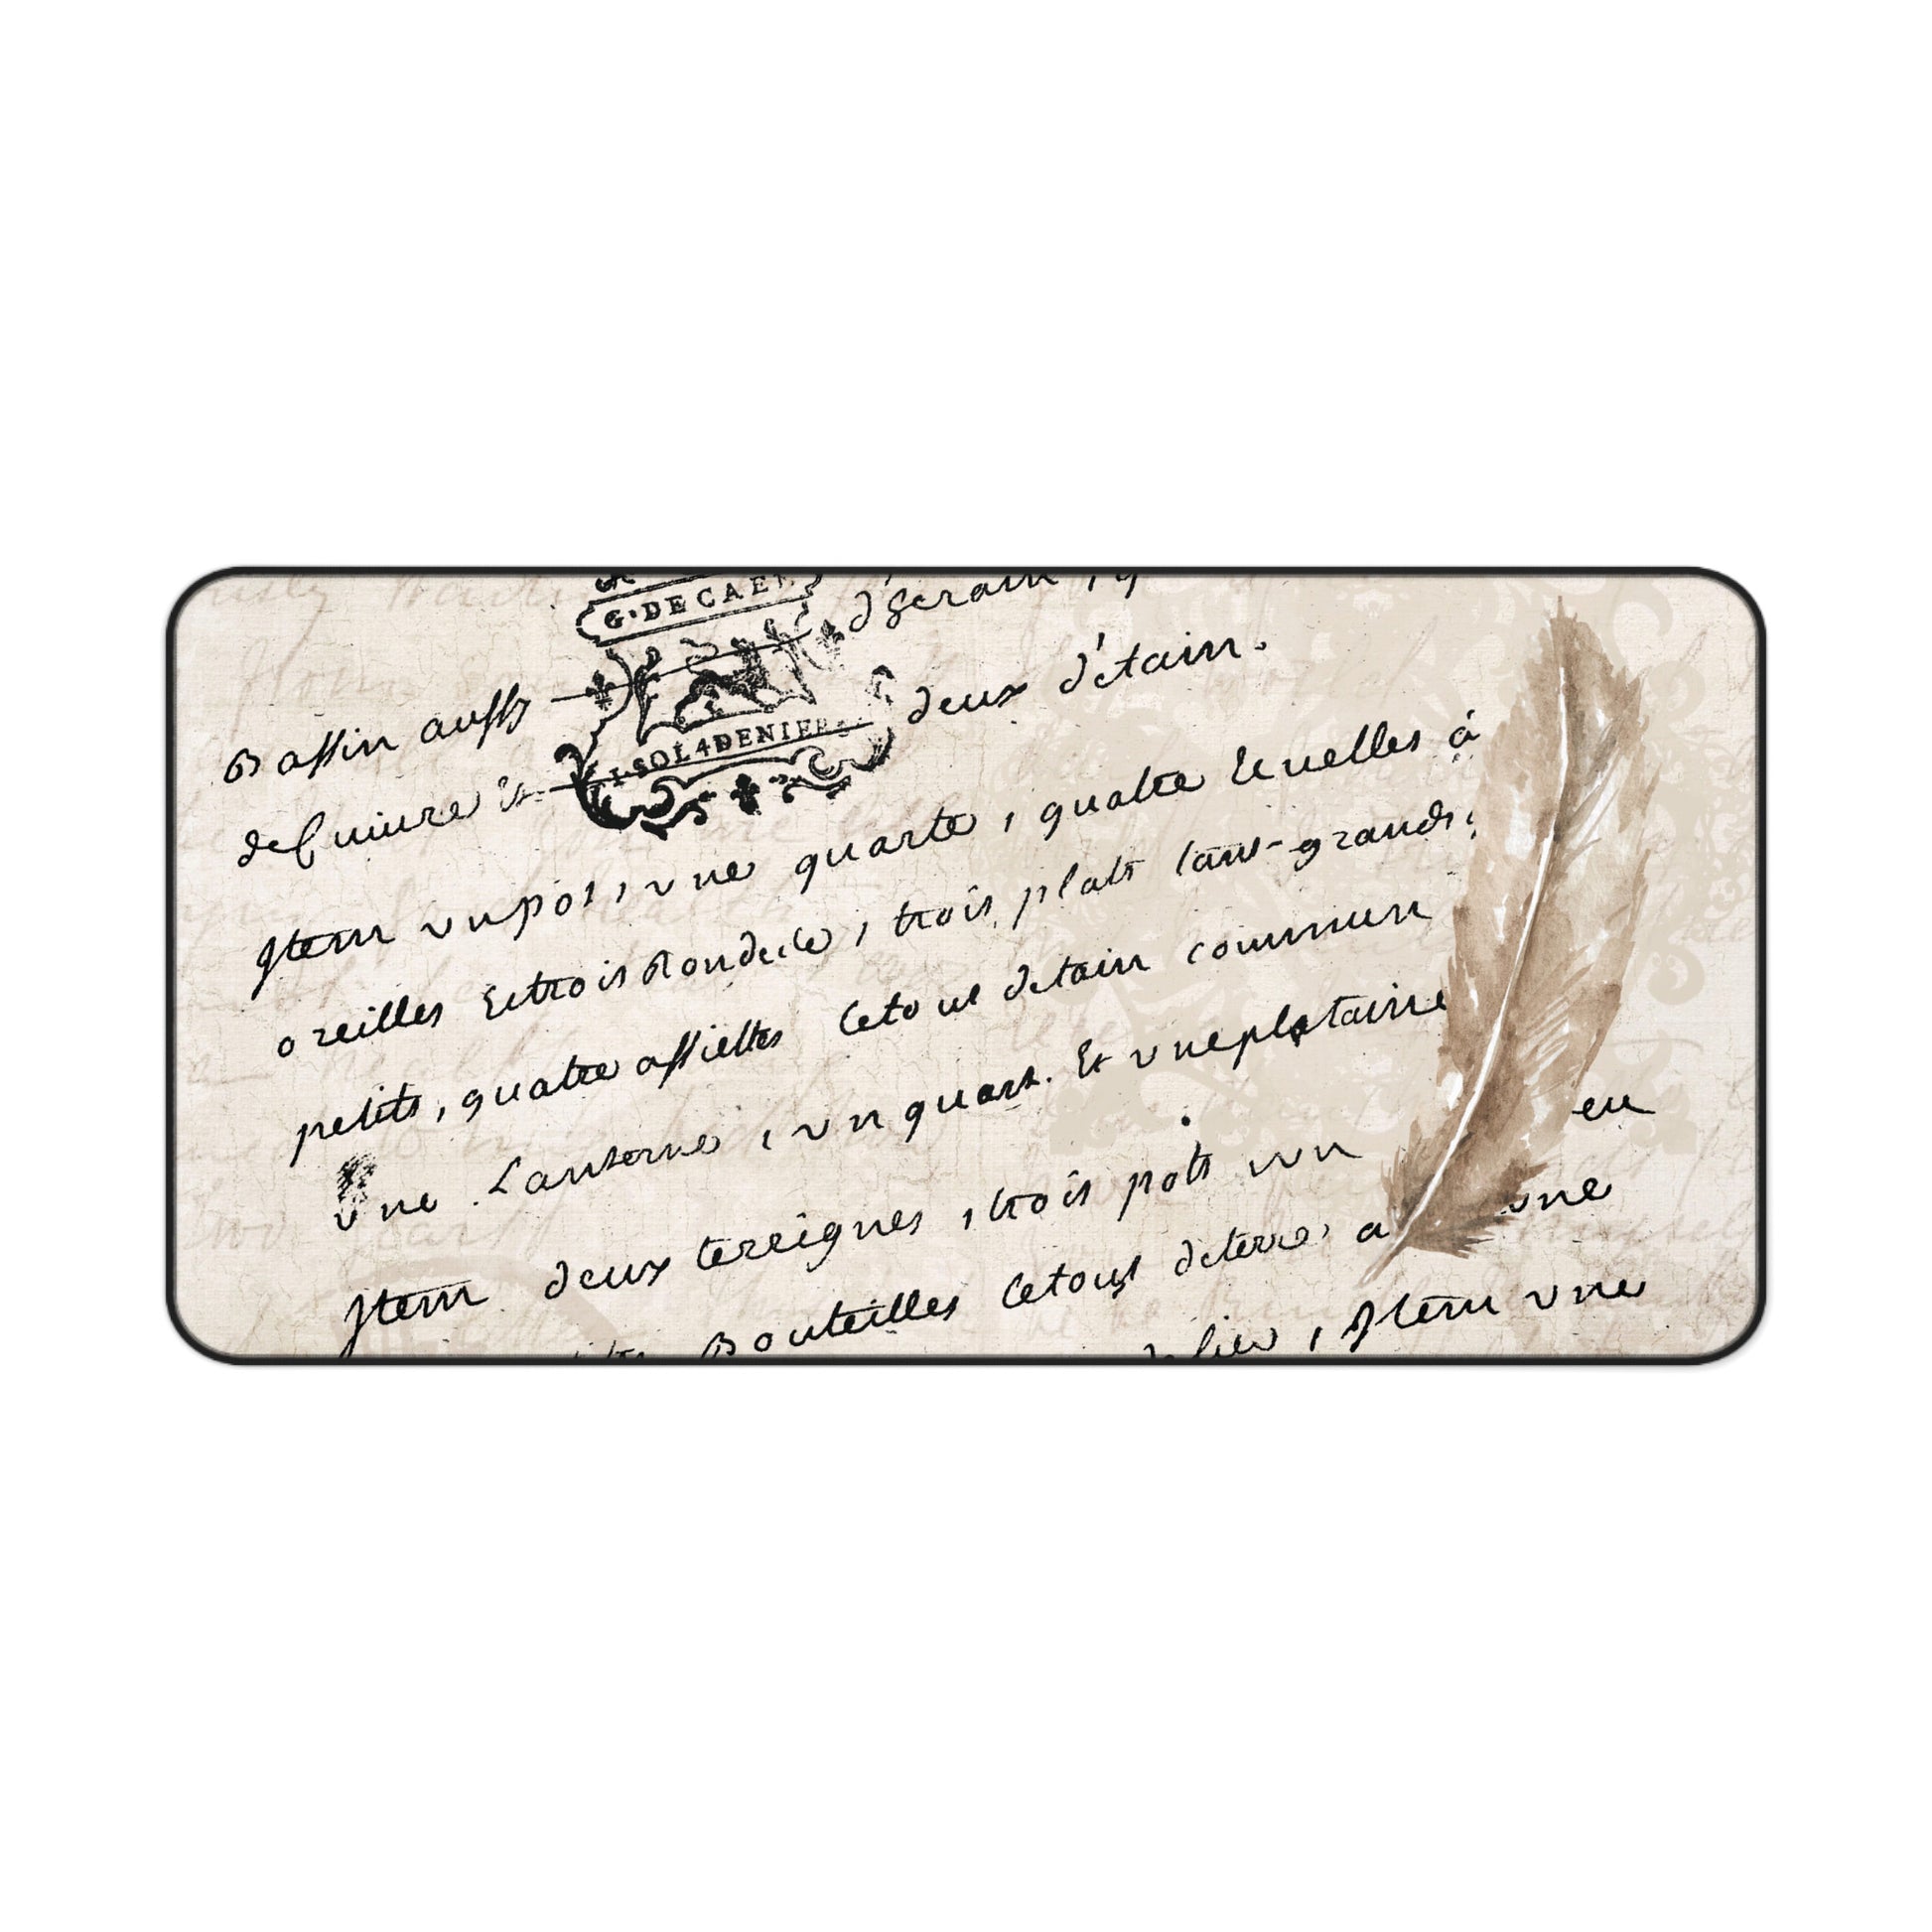 G·DECAEN
d'Serain, q
Bassin aussy
deux d'étain.
1·SOL4DENIERS
de Cuiure et
Jtem vn pot, vne quarte, quatre Ecuelles à
oreilles Et trois Rondele, trois plats tant-grands
petits, quatre assiettes Cetout détain commun
vne Lanterne, vn quart. Et vne plataine
Jtem deux terrignes, trois pots vn eu
Bouteilles Cetout deterre, a vne
Jtem vne